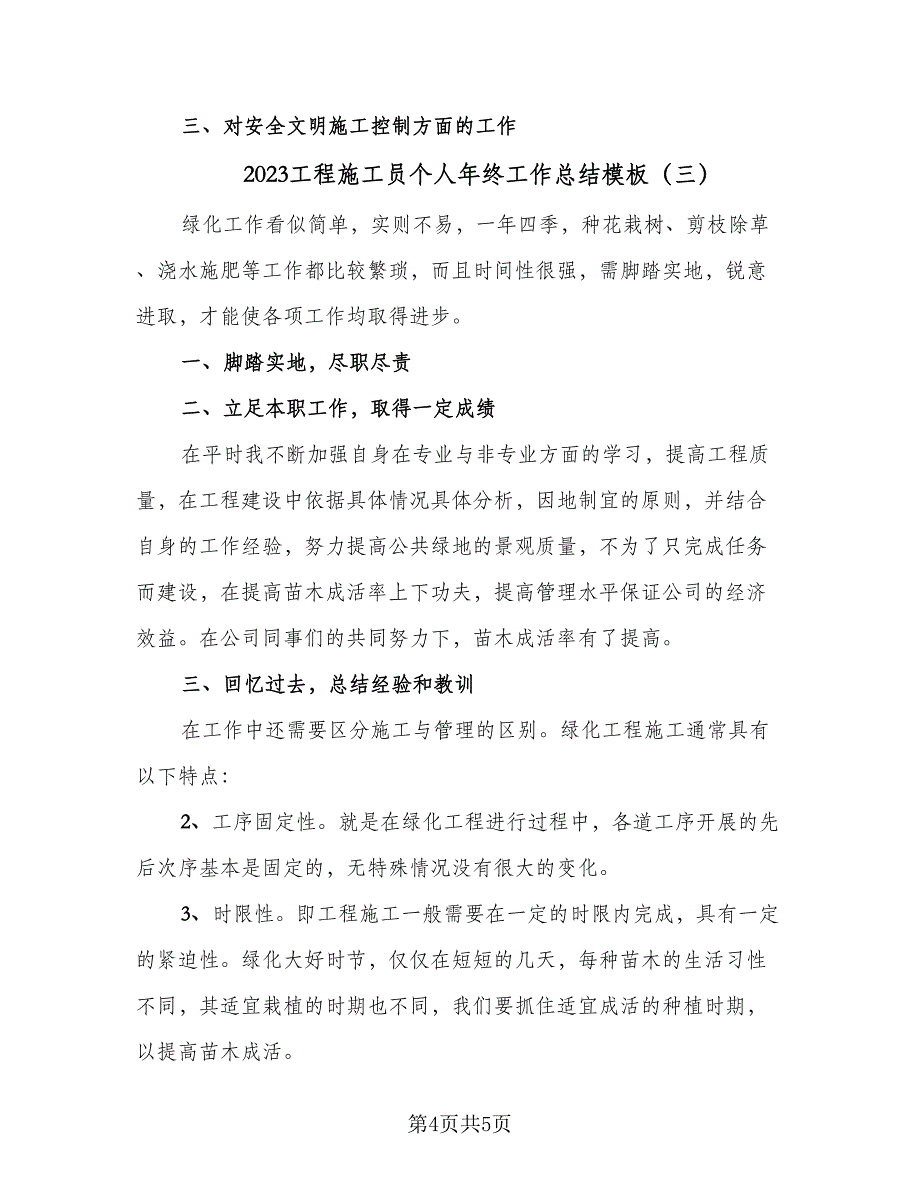 三、对安全文明施工控制方面的工作
2023工程施工员个人年终工作总结模板（三）
绿化工作看似简单，实则不易，一年四季，种花栽树、剪枝除草
、浇水施肥等工作都比较繁琐，而且时间性很强，需脚踏实地，锐意
进取，才能使各项工作均取得进步。
一、脚踏实地，尽职尽责
二、立足本职工作，取得一定成绩
在平时我不断加强自身在专业与非专业方面的学习，提高工程质
量，在工程建设中依据具体情况具体分析，因地制宜的原则，并结合
自身的工作经验，努力提高公共绿地的景观质量，不为了只完成任务
而建设，在提高苗木成活率上下功夫，提高管理水平保证公司的经济
效益。在公司同事们的共同努力下，苗木成活率有了提高。
三、回忆过去，总结经验和教训
在工作中还需要区分施工与管理的区别。绿化工程施工通常具有
以下特点：
2、工序固定性。就是在绿化工程进行过程中，各道工序开展的先
后次序基本是固定的，无特殊情况没有很大的变化。
3、时限性。即工程施工一般需要在一定的时限内完成，具有一定
的紧迫性。绿化大好时节，仅仅在短短的几天，每种苗木的生活习性
不同，其适宜栽植的时期也不同，我们要抓住适宜成活的种植时期，
以提高苗木成活。
第4页共5页